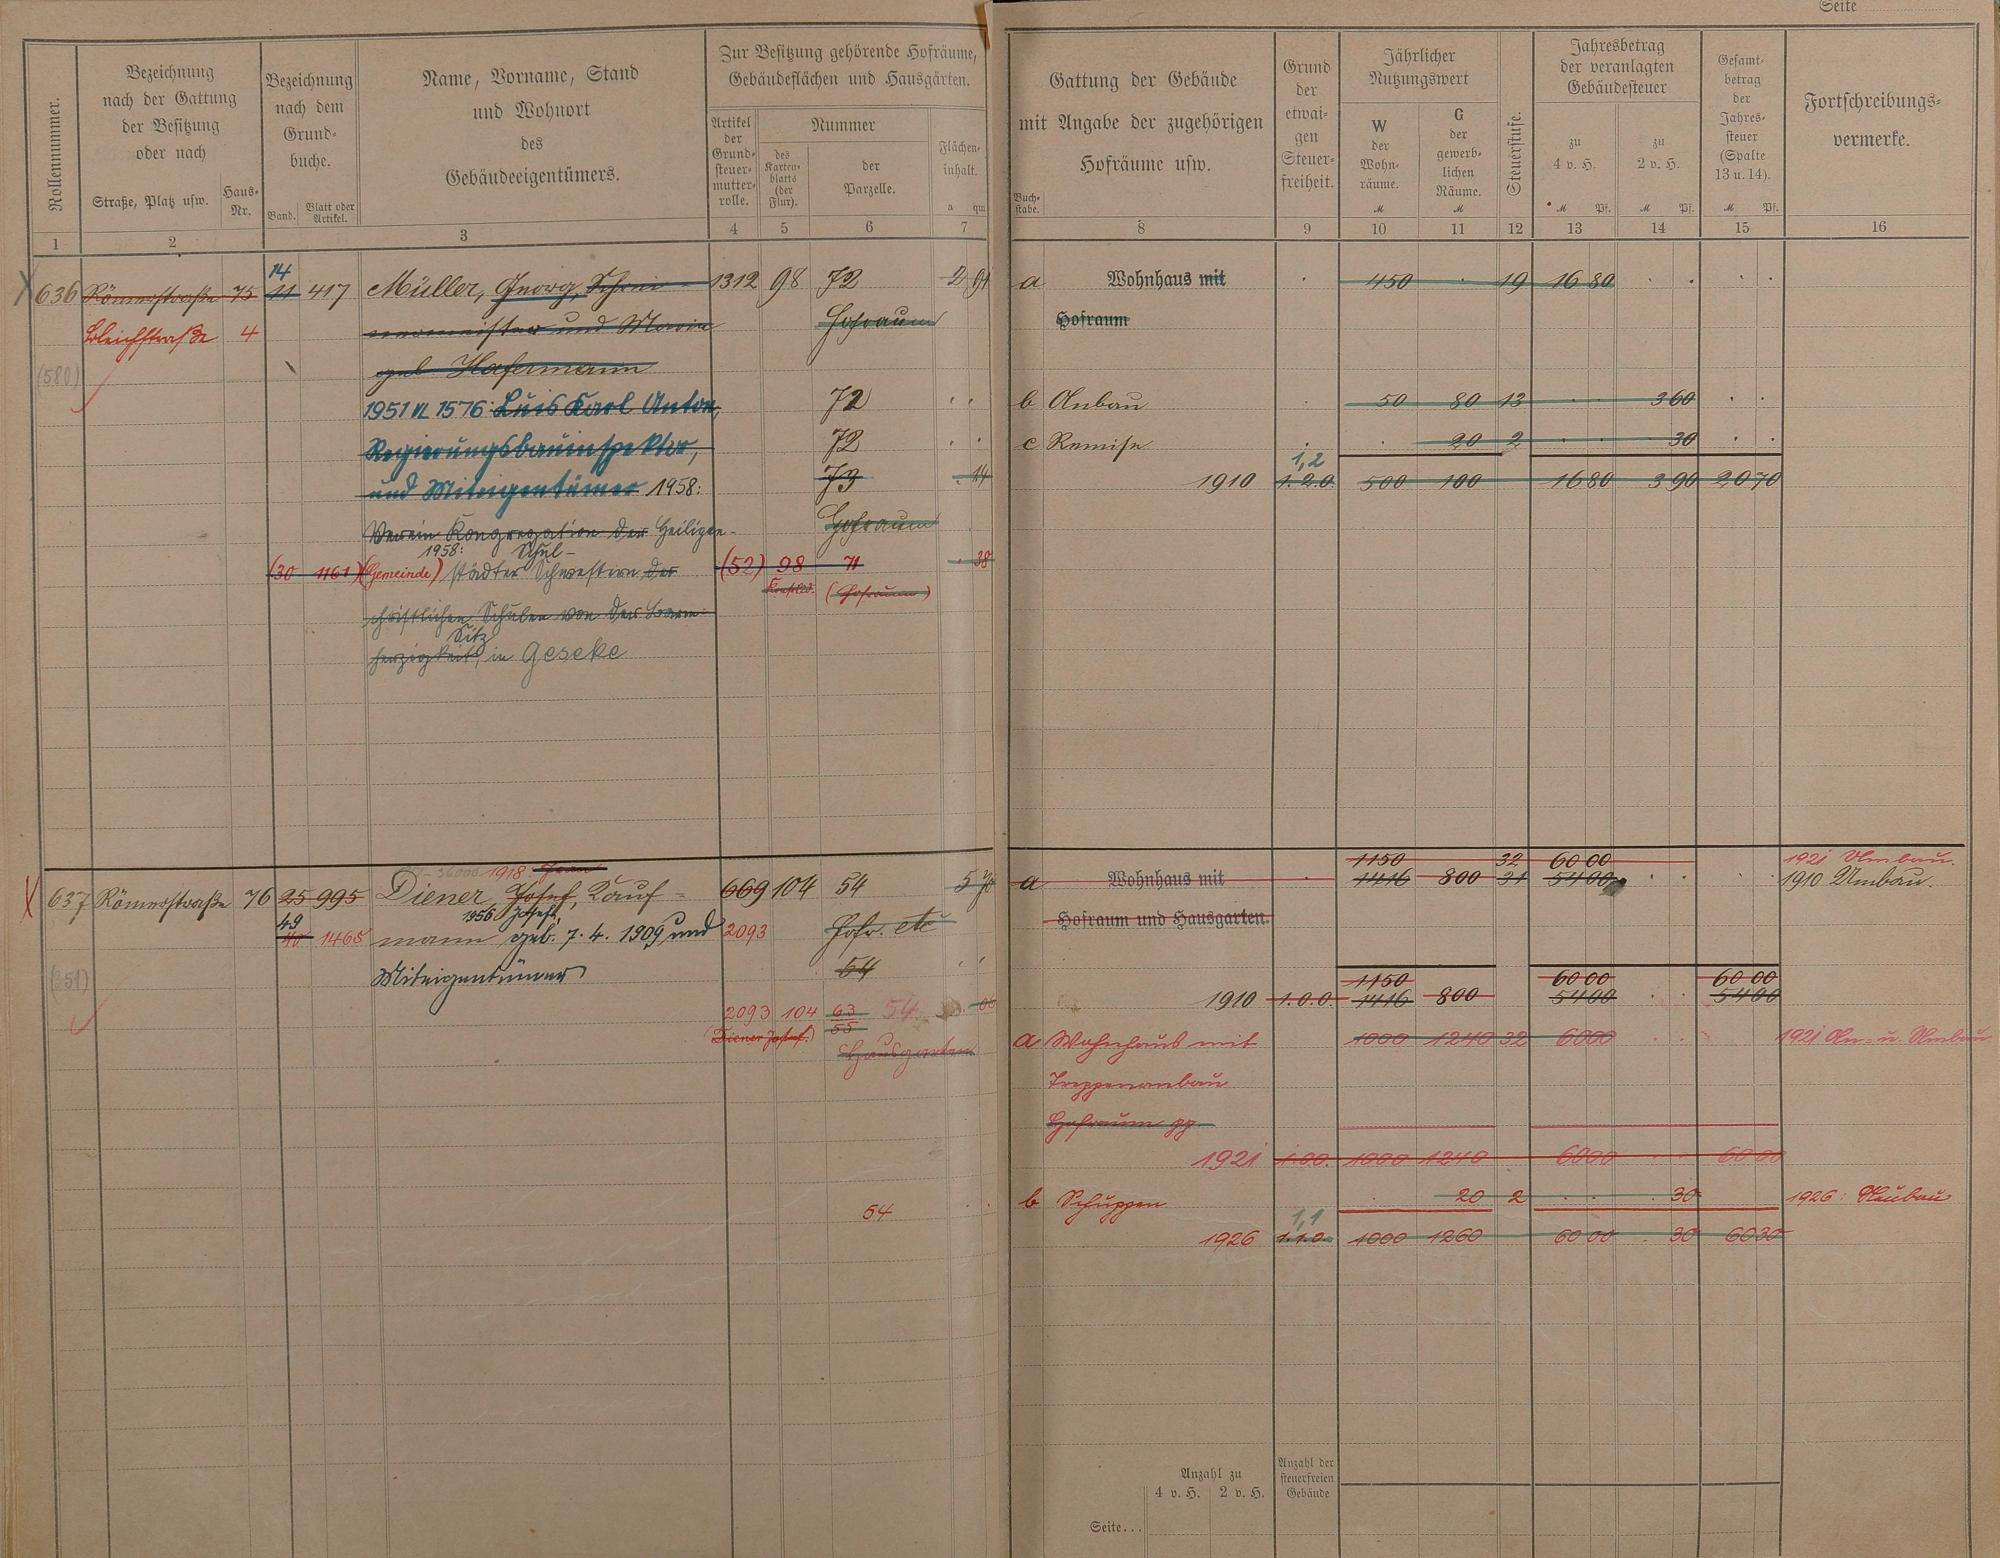 Seite
Rollennummer.
Bezeichnung
nach der Gattung
der Besitzung
oder nach
Straße, Platz usw.
Haus-
Nr.
Bezeichnung
nach dem
Grund-
buche.
Band.
Blatt oder
Artikel.
Name, Vorname, Stand
und Wohnort
des
Gebäudeeigentümers.
Zur Besitzung gehörende Hofräume,
Gebäudeflächen und Hausgärten.
Artikel
der
Grund-
steuer-
mutter-
rolle.
Nummer
des
Karten-
blatts
(der
Flur).
der
Parzelle.
Flächen-
inhalt.
a qm
1 2 3 4 5 6 7
Gattung der Gebäude
mit Angabe der zugehörigen
Hofräume usw.
Buch-
stabe.
Grund
der
etwai-
gen
Steuer-
freiheit.
Jährlicher
Nutzungswert
W
der
Wohn-
räume.
M
G
der
gewerb-
lichen
Räume.
M
Steuerstufe.
Jahresbetrag
der veranlagten
Gebäudesteuer
zu
4 v. H.
M Pf.
zu
2 v. H.
M Pf.
Gesamt-
betrag
der
Jahres-
steuer
(Spalte
13 u. 14).
M Pf.
Fortschreibungs-
vermerke.
8 9 10 11 12 13 14 15 16
14
636 Römerstraße 75 11 417 Müller, Georg, Schrei- 1312 98 72 2 91
Bleichstraße 4 nermeister und Maria Hofraum
(580) geb. Hafermann
1951 VL 1576: Luis Karl Anton, 72
Regierungsbauinspektor, 72
und Miteigentümer 1958: 73 14
Verein Kongregation der Heiligen- Hofraum
1958: Schul-
(30 1161) (Gemeinde) städter Schwestern der (52) 98 71 38
(Hofraum)
christlichen Schulen von der Barm-
Sitz
herzigkeit, in Geseke
a Wohnhaus mit 450 19 16 80
Hofraum
b Anbau 50 80 13 3 60
c Remise 20 2 30
1,2
1910 1.2.0. 500 100 16 80 3 90 20 70
1918:
637 Römerstraße 76 25 995 Diener Josef, Kauf- 669 104 54 5
49 1956 Josef,
40 1465 mann geb. 7. 4. 1909 und 2093 Hofr. etc
Miteigentümer 54
(351)
2093 104 63 54 06
55
(Diener Josef.)
Hausgarten
54
1150 32 60 00 1921 Umbau.
a Wohnhaus mit 1416 800 31 54 00 1910 Umbau.
Hofraum und Hausgarten.
1150 60 00 60 00
1910 1.0.0 1416 800 54 00 54 00
a Wohnhaus mit 1000 1240 32 60 00 1921 An- u. Umbau
Treppenanbau
Hofraum pp
1921 1.00. 1000 1240 60 00 60 00
b Schuppen 20 2 30 1926: Neubau
1,1
1926 1.1.0. 1000 1260 60 00 30 60 30
Anzahl zu
4 v. H. 2 v. H.
Anzahl der
steuerfreien
Gebäude
Seite...